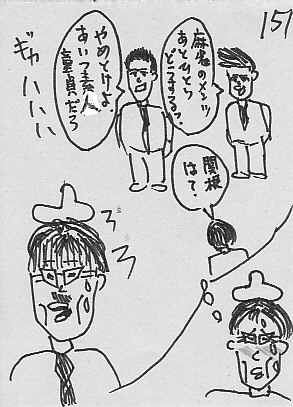 151
麻雀のメンツ
あとひとり
どうする?
関根
は?
やめとけよ、
あいつ素人
童貞だろ
ギャハハハ